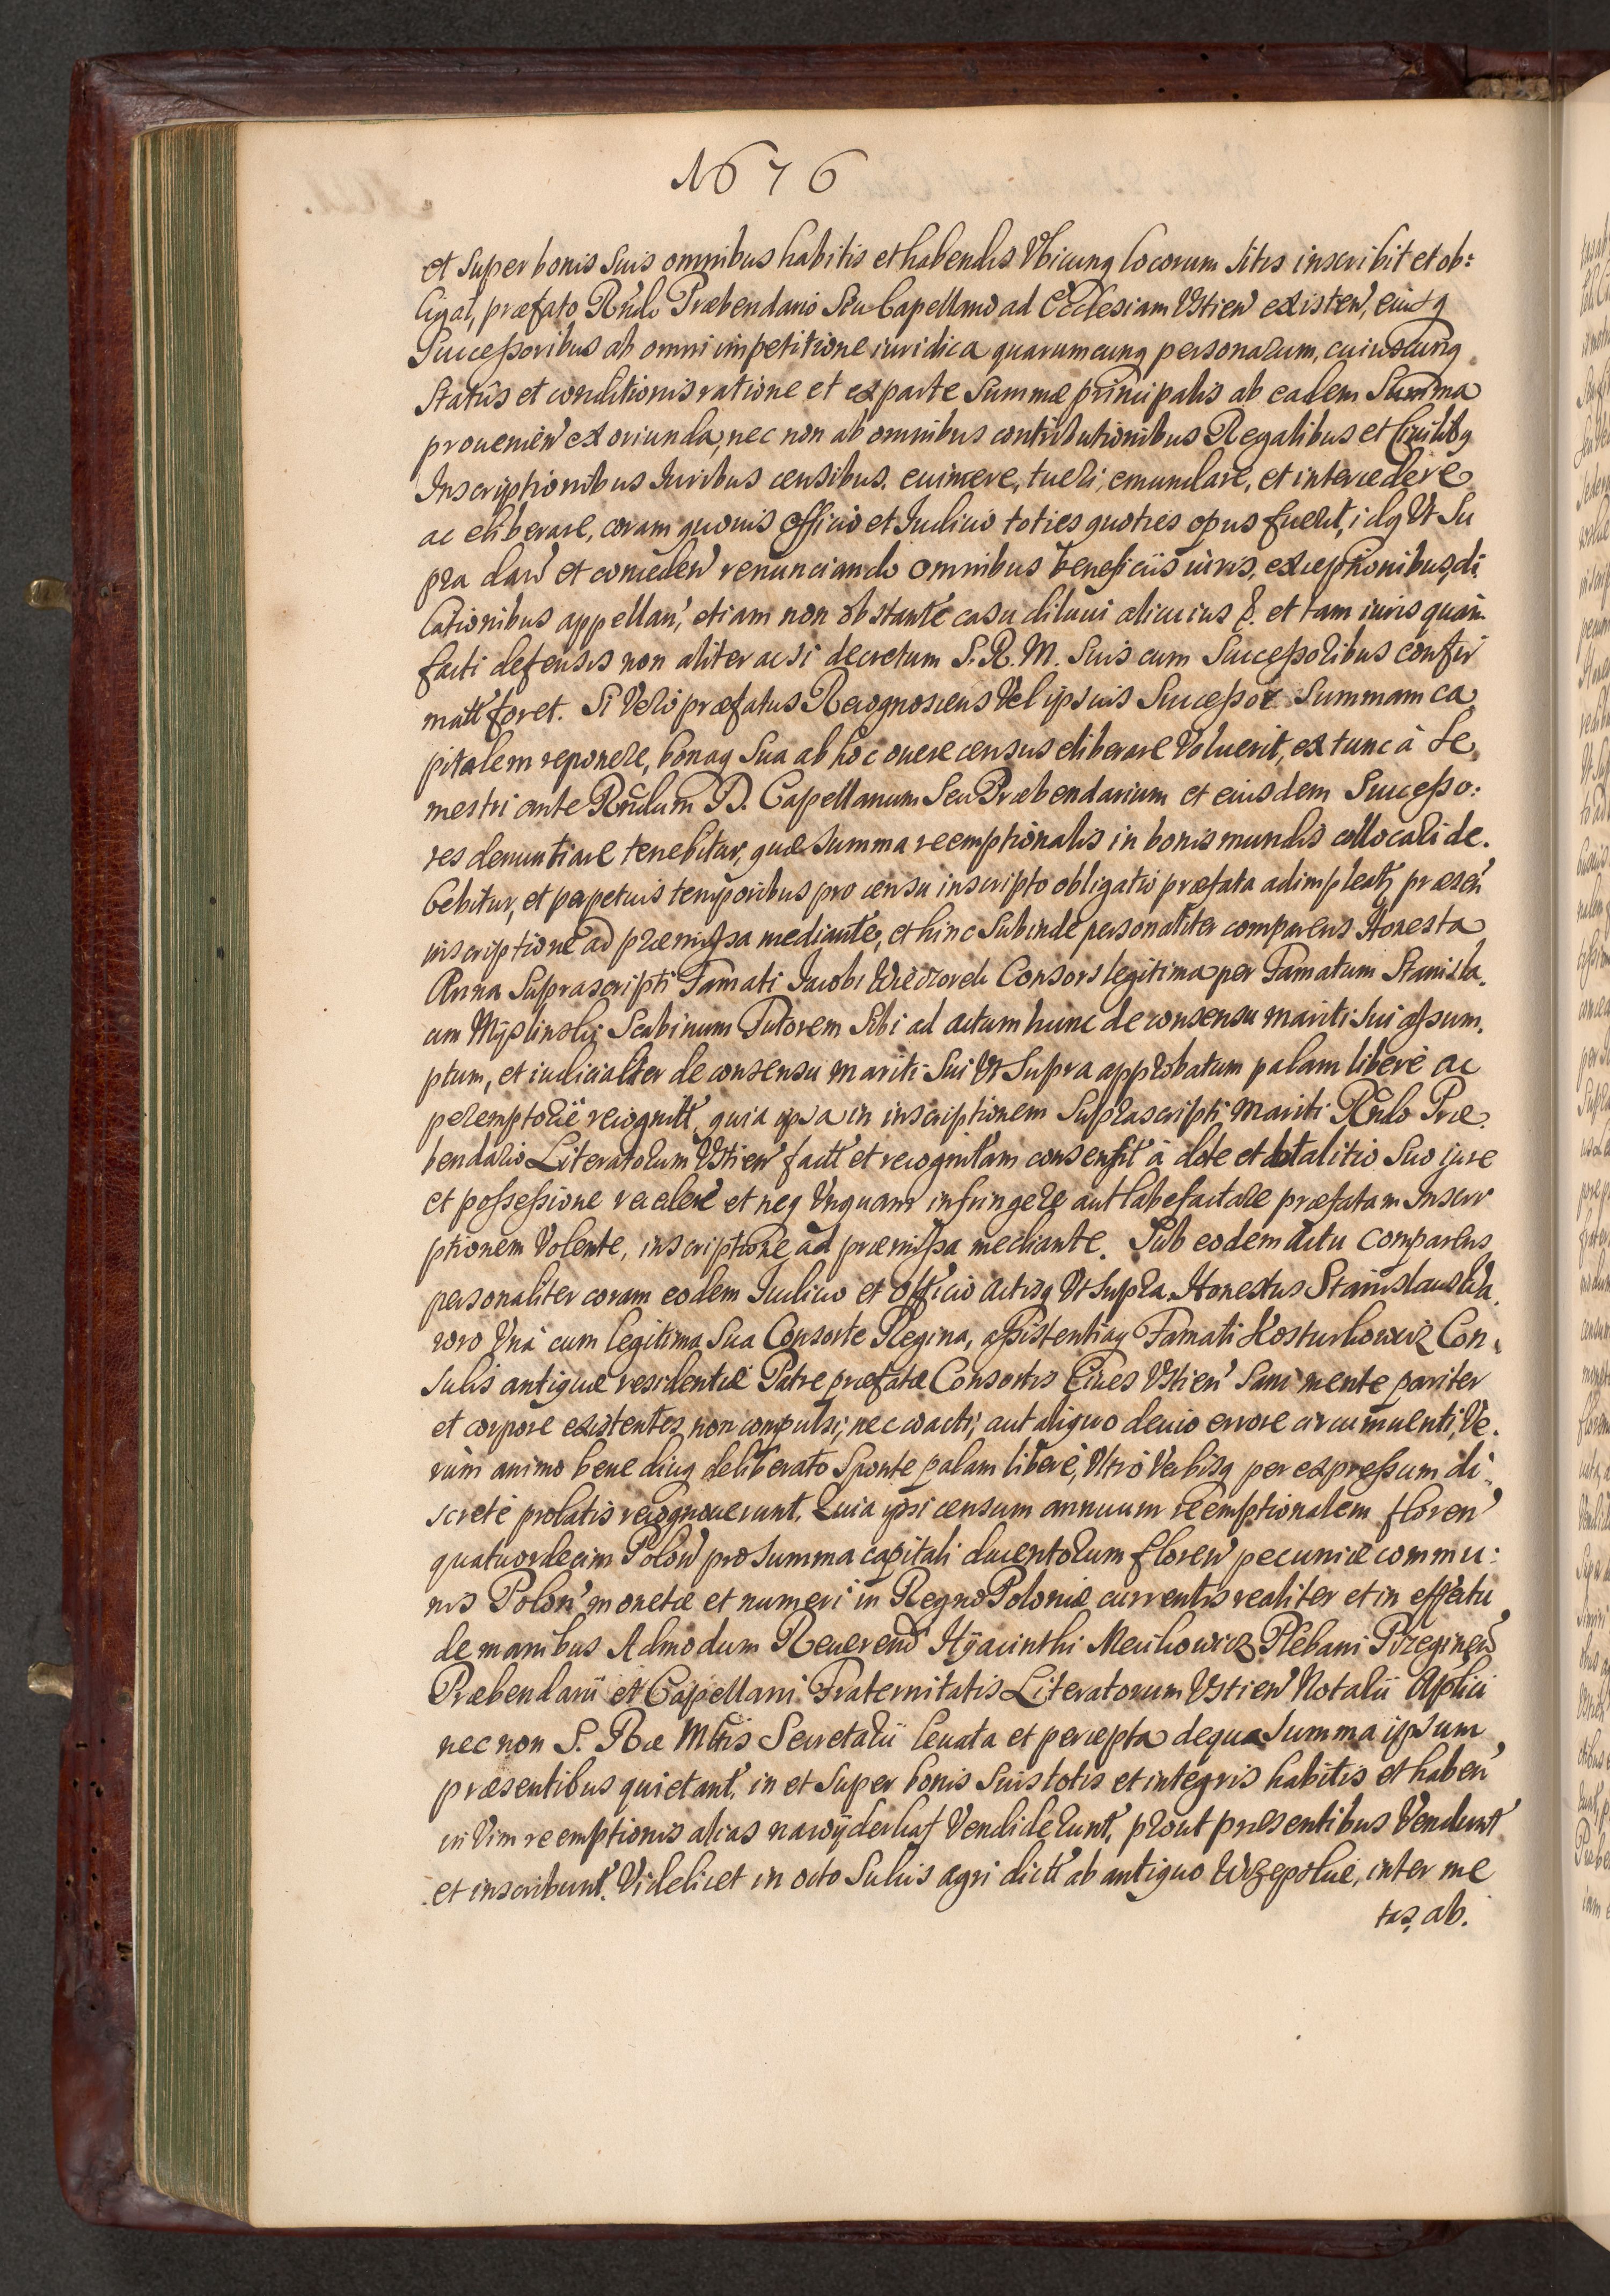 1676
et super bonis suis omnibus habitis et habendis Vbicunq locorum sitis inscribit et ob:
ligat, præfato Rndo Præbendario seu Capellano ad Ecclesiam Vstien existen, eiusq
Successoribus ab omni impetitione iuridica quarumcunq personarum, cuiuscunq
status et conditionis ratione et ex parte summæ principalis ab eadem Summa
prouenien et oriunda, nec non ab omnibus contributionibus Regalibus et Ciuilibq
Inscriptionibus Iuribus censibus. euincere, tueri, emundare, et intercedere
ac eliberare, coram quouis officio et Iudicio toties quoties opus fuerit, idq Vt Su
pra dan et conceden renunciando omnibus beneficiis iuris, exceptionibus, di
lationibus appellan, etiam non obstante casu diluui alicuius &. et tam iuris quam
facti defensis non aliter ac si decretum S. R. M. suis cum Successoribus confir
matt foret. Si Vero præfatus Recognoscens Vel ipsius Successor Summam ca
pitalem reponere, bonaq sua ab hoc onere census eliberare Voluerit, ex tunc à se
mestri ante Rndum D. Capellanum seu Præbendarium et eiusdem Successo:
res denuntiare tenebitur, quæ summa reemptionalis in bonis mundis collocari de.
bebitur, et perpetuis temporibus pro censu inscripto obligatio præfata adimpleatz præsen
inscriptione ad præmissa mediante, et hinc subinde personaliter comparens Honesta
Anna suprascripti Famati Iacobi Wieczorek Consors legitima per Famatum Stanisla.
um Myslinsky Scabinum Tutorem sibi ad actum hunc de consensu mariti sui assum.
ptum, et iudicialter de consensu mariti sui Vt supra approbatum palam liberè ac
peremptoriè recognitt, quia ipsa in inscriptionem suprascripti mariti Rndo Præ.
bendario Literatorum Vstien factt et recognitam consensit à dote et dotalitio suo iure
et possessione recedere et neq Vnquam infringere aut labefactare præfatam Inscri
ptionem Volente, inscriptione ad præmissa mediante. Sub eodem Actu comparens
personaliter coram eodem Iudicio et officio Actisq Vt supra Honestus Stanislaus
Vnà cum legitima sua Consorte Regina, assistentiaq Famati Kosturkowicz Con,
sulis antiquæ residentiæ Patre præfatæ Consortis Ciues Vstien sani mente pariter
et corpore existentes, non compulsi, nec coacti, aut aliquo deuio errore circumuenti, Ve.
rùm animo bene diuq deliberato Sponte palam liberè, Vtrò Verbisq per expressum di
scretè prolatis recognouerunt, Quia ipsi censum annuum reemptionalem floren
quatuordecim Polon pro summa capitali ducentorum floren pecuniæ commu:
nis Polon monetæ et numeri in Regno Poloniæ currentis realiter et in effectu
de manibus Admodum Reuerend Hyacinthi Meuchowicz Plebani Przeginen
Præbendarii et Capellani Fraternitatis Literatorum Vstien Notarii Aplici
nec non S. Ræ Mttis Secretarii leuata et percepta de qua summa ipsum
præsentibus quietant, in et super bonis suis totis et integris habitis et haben
in Vim reemptionis alias nawyderkaf Vendiderunt, prout præsentibus Vendunt
et inscribunt. Videlicet in octo sulcis agri dictt ab antiquo Wrzepolue, inter me
tas, ab.